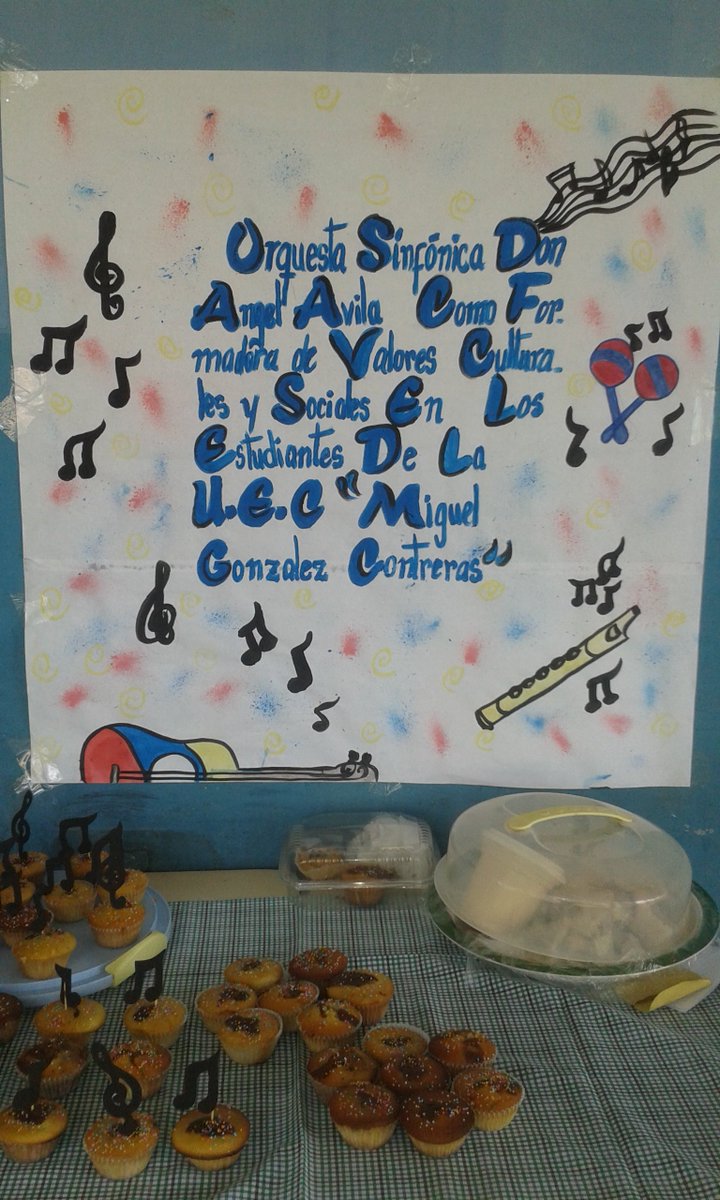 Orquesta Sinfónica Don
Angel Avila Como For-
madora de Valores Cultura-
les y Sociales En Los
Estudiantes De La
U.E.C "Miguel
Gonzalez Contreras"